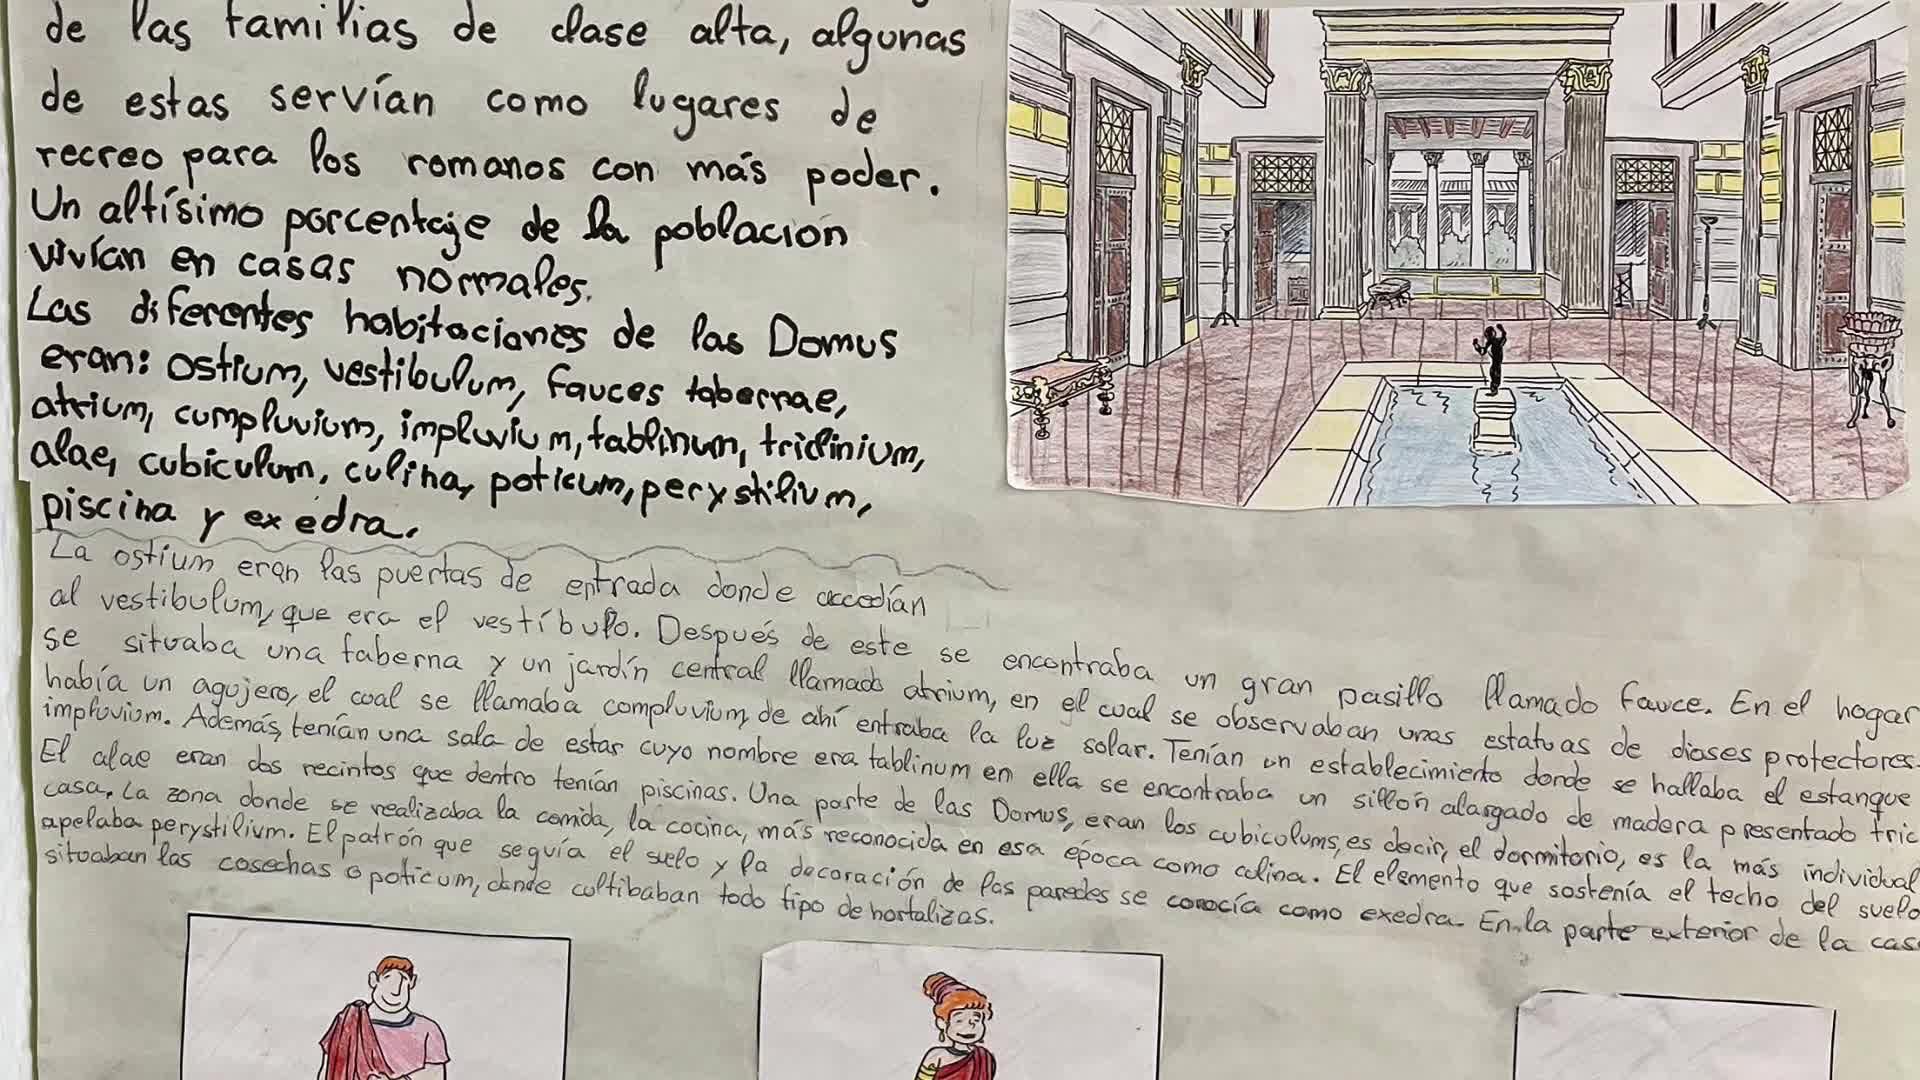 de las familias de clase alta, algunas
de estas servían como lugares de
recreo para los romanos con más poder.
Un altísimo porcentaje de la población
vivían en casas normales.
Las diferentes habitaciones de las Domus
eran: ostium, vestibulum, fauces tabernae,
atrium, cumpluvium, impluvium, tablinum, triclinium,
alae, cubiculum, culina, poticum, perystilium,
piscina y exedra.
La ostium eran las puertas de entrada donde accedían
al vestibulum, que era el vestíbulo. Después de este se encontraba un gran pasillo llamado fauce. En el hogar
se situaba una taberna y un jardín central llamado atrium, en el cual se observaban unas estatuas de dioses protectores.
había un agujero, el cual se llamaba compluvium, de ahí entraba la luz solar. Tenían un establecimiento donde se hallaba el estanque
impluvium. Además, tenían una sala de estar cuyo nombre era tablinum en ella se encontraba un sillón alargado de madera presentado
El alae eran dos recintos que dentro tenían piscinas. Una parte de las Domus, eran los cubiculums, es decir, el dormitorio, es la más individual
casa. La zona donde se realizaba la comida, la cocina, más reconocida en esa época como culina. El elemento que sostenía el techo del suelo
apelaba perystilium. El patrón que seguía el suelo y la decoración de las paredes se conocía como exedra. En la parte exterior de la
situaban las cosechas o poticum, donde cultibaban todo tipo de hortalizas.